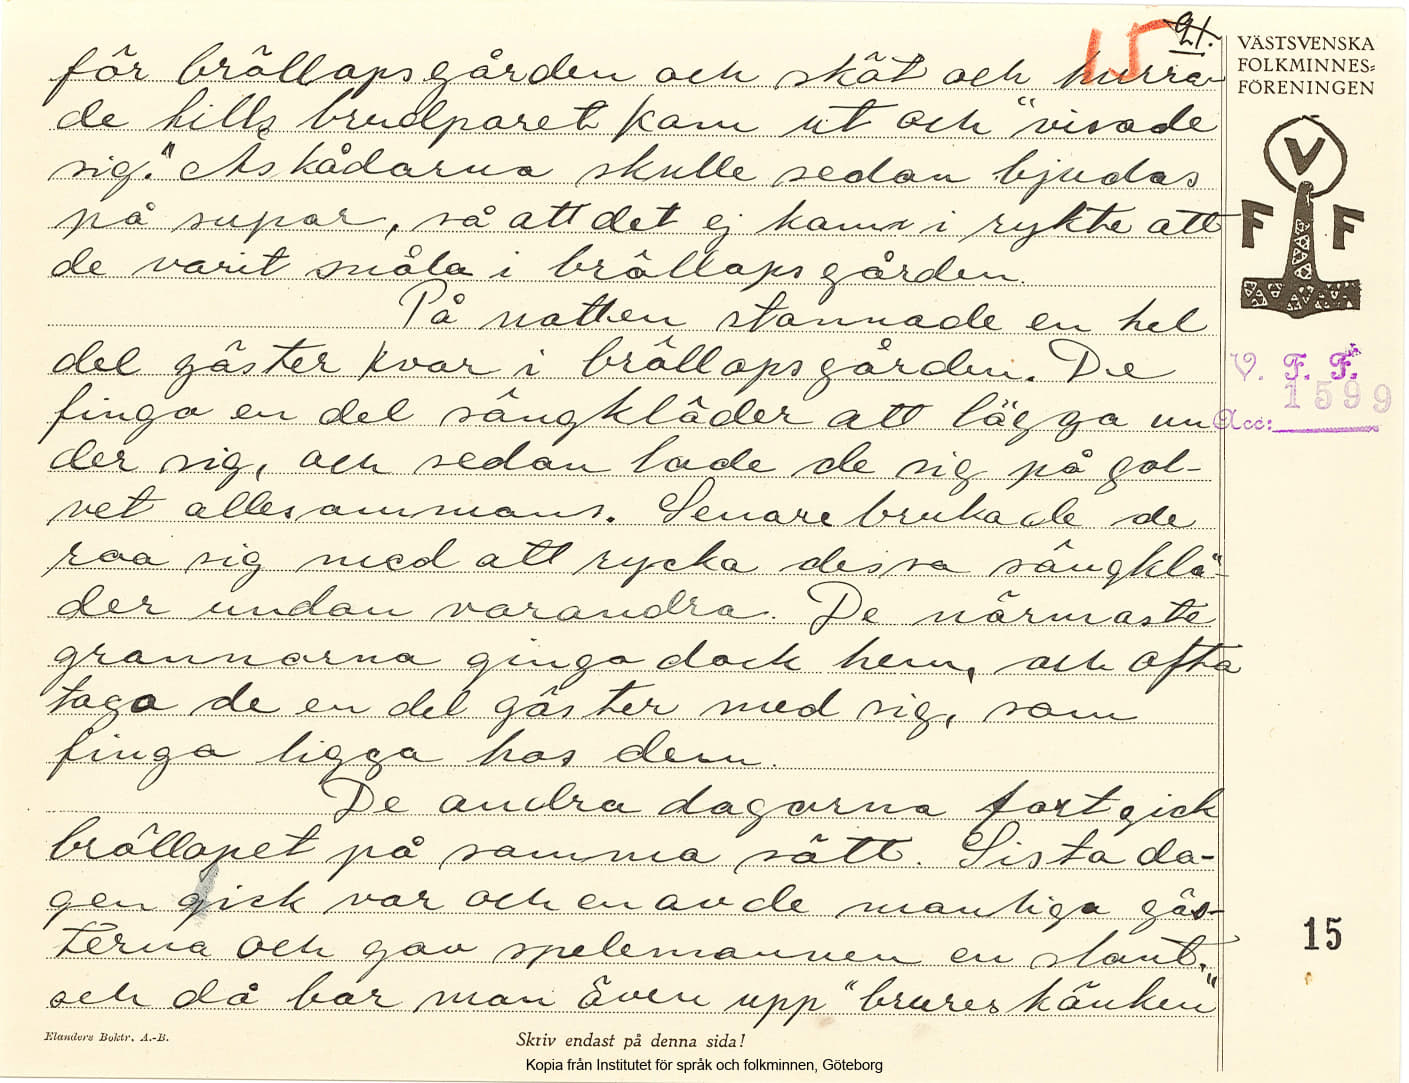 15 21.
VÄSTSVENSKA
FOLKMINNES=
FÖRENINGEN
för bröllapsgården och sköt och hurra-
de tills brudparet kom ut och "visade
sig." Åskådarna skulle sedan bjudas
på supar, så att det ej kom i rykte att
de varit snåla i bröllapsgården.
På natten stannade en hel
del gäster kvar i bröllapsgården. De
finga en del sängkläder att lägga un
der sig, och sedan lade de sig på gol-
vet allesammans. Senare brukade de
roa sig med att rycka dessa sängklä-
der undan varandra. De närmaste
grannarna ginga dock hem, och ofta
toga de en del gäster med sig, som
finga ligga hos dem.
De andra dagarna fortgick
bröllapet på samma sätt. Sista da-
gen gick var och en av de manliga gäs-
terna och gav spelemannen en slant,
och då bar man även upp "brureskänken"
V F F
V. F. F.
1599
Acc:
15
Elanders Boktr. A.-B.
Skriv endast på denna sida!
Kopia från Institutet för språk och folkminnen, Göteborg